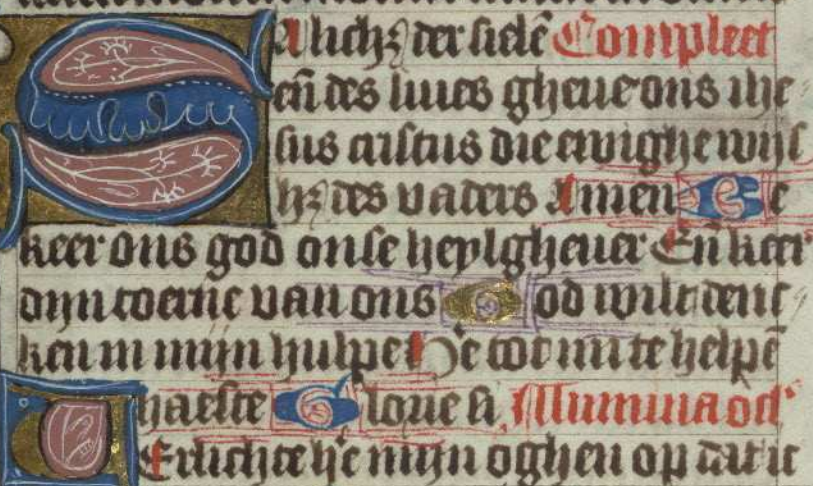 SAlichꝫ der sielē Compleet
eñ des liues gheue ons ihe
sus cristus die ewighe wijs
hꝫ des vaders Amen Be
keer ons god onse heylgheuer Eñ keer
dijn toerne van ons God wilt denc
ken in mijn hulpe He tot mi te helpē
haeste Glorie si Illumina ocl'
VErlichte he mijn oghen op dat ic